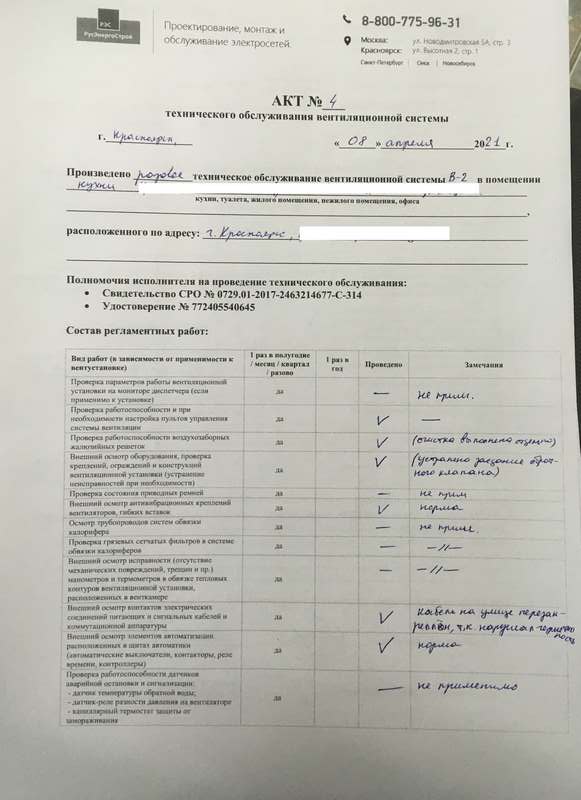 РЭС
РусЭнергоСтрой
Проектирование, монтаж и
обслуживание электросетей.
8-800-775-96-31
Москва: ул. Новодмитровская 5А, стр. 3
Красноярск: ул. Высотная 2, стр. 1
Санкт-Петербург | Омск | Новосибирск
АКТ № 4
технического обслуживания вентиляционной системы
г. Красноярск, « 08 » апреля 2021 г.
Произведено разовое техническое обслуживание вентиляционной системы В-2 в помещении
кухни
кухни, туалета, жилого помещения, нежилого помещения, офиса
расположенного по адресу: г. Красноярск,
Полномочия исполнителя на проведение технического обслуживания:
• Свидетельство СРО № 0729.01-2017-2463214677-С-314
• Удостоверение № 772405540645
Состав регламентных работ:
Вид работ (в зависимости от применимости к
вентустановке)
1 раз в полугодие
/ месяц / квартал
/ разово
1 раз в
год
Проведено
Замечания
Проверка параметров работы вентиляционной
установки на мониторе диспетчера (если
применимо к установке)
да
—
не прим.
Проверка работоспособности и при
необходимости настройка пультов управления
системы вентиляции
да
✓
—
Проверка работоспособности воздухозаборных
жалюзийных решеток
да
✓
(очистка выполнена отдельно)
Внешний осмотр оборудования, проверка
креплений, ограждений и конструкций
вентиляционной установки (устранение
неисправностей при необходимости)
да
✓
(устранено заедание обрат-
ного клапана)
Проверка состояния приводных ремней
да
—
не прим
Внешний осмотр антивибрационных креплений
вентиляторов, гибких вставок
да
✓
норма
Осмотр трубопроводов систем обвязки
калорифера
да
—
не прим.
Проверка грязевых сетчатых фильтров в системе
обвязки калориферов
да
—
-//-
Внешний осмотр исправности (отсутствие
механических повреждений, трещин и пр.)
манометров и термометров в обвязке тепловых
контуров вентиляционной установки,
расположенных в венткамере
да
—
-//-
Внешний осмотр контактов электрических
соединений питающих и сигнальных кабелей и
коммутационной аппаратуры
да
✓
Кабель на улице перезак-
реплён, т.к. нарушал
Внешний осмотр элементов автоматизации
расположенных в щитах автоматики
(автоматические выключатели, контакторы, реле
времени, контроллеры)
да
✓
норма
Проверка работоспособности датчиков
аварийной остановки и сигнализации:
- датчик температуры обратной воды;
- датчик-реле разности давления на вентиляторе
- капиллярный термостат защиты от
замораживания
да
—
не применимо